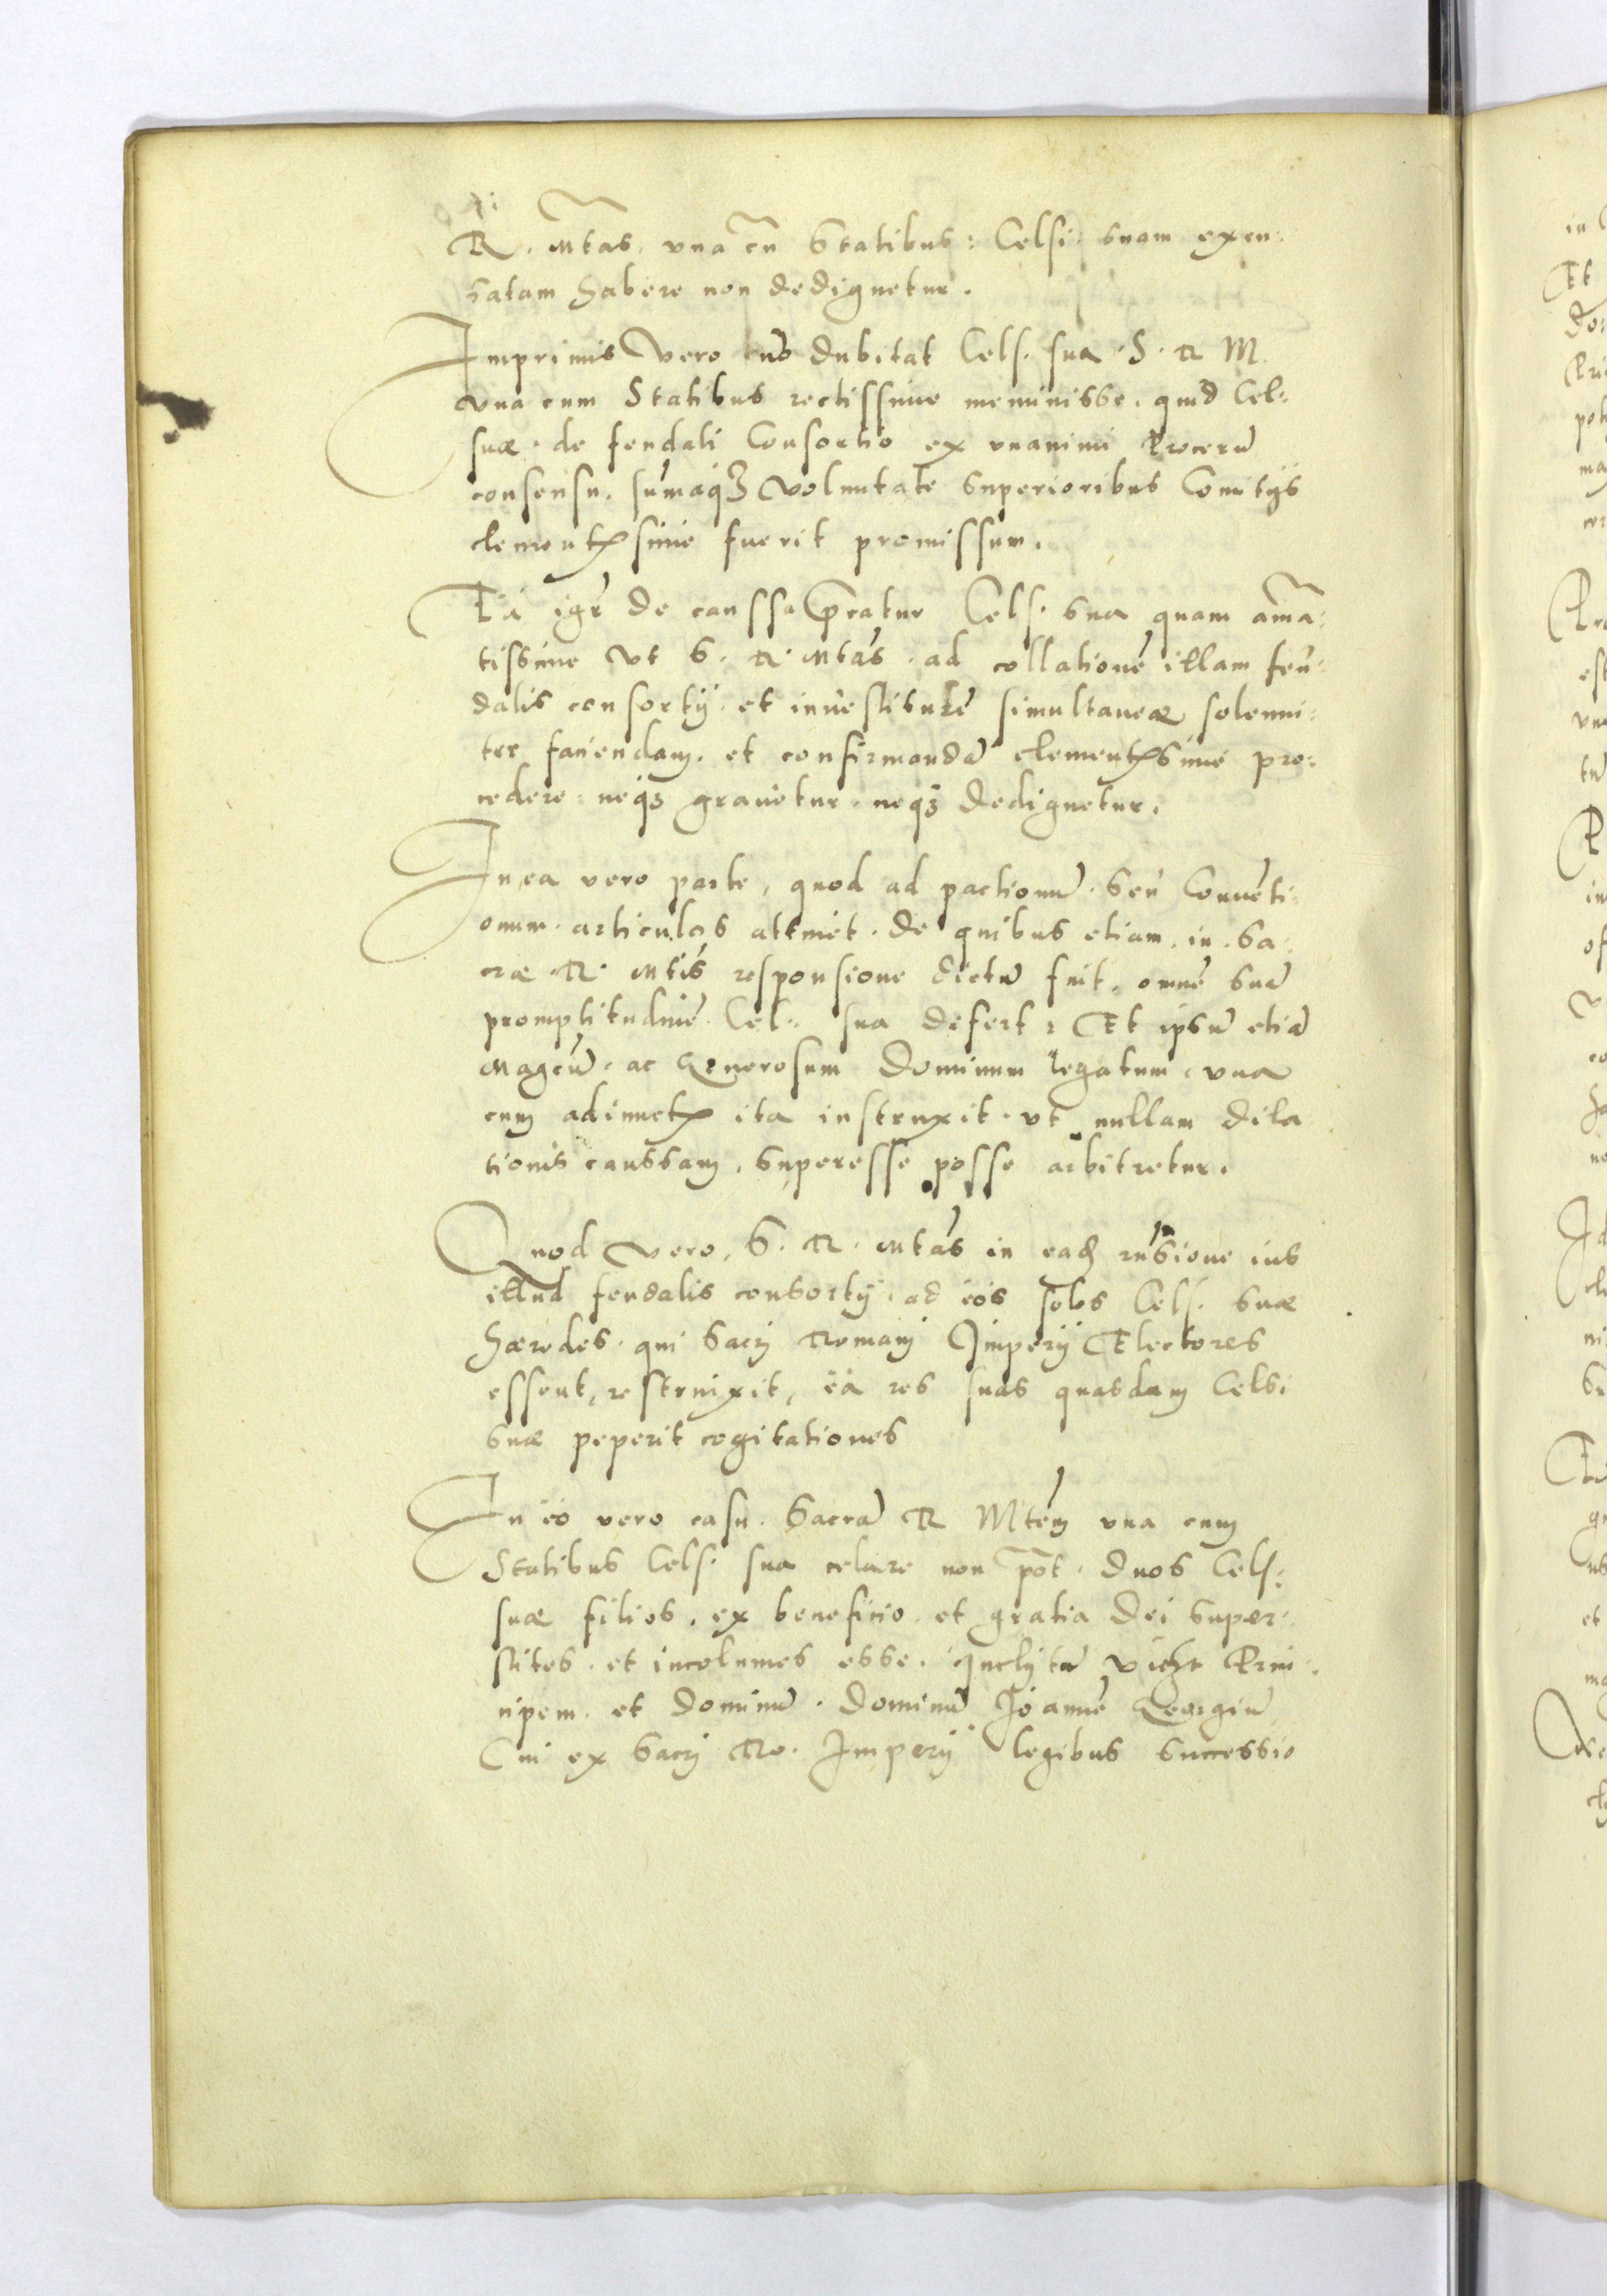 R. Mtas. vna cū Statibus: Celsi. suam excu:
satam habere non dedignetur.
Imprimis Vero dubitat Cels. sua. S. R M.
vna cum Statibus rectissime meminisse, quid Cel:
suæ. de feudali Consortio ex vnanimi Procerū
consensu, sūmaqȝ voluntate superioribus Comitijs
clementissime fuerit promissum.
Ea igr̄ de caussa p̄catur Cels. sua quam amā:
tissime Vt S. R. Mtas. ad collationē illam feu:
dalis consortij. et inuestiturē simultaneæ solenni:
ter faciendam. et confirmandā clementissime pro:
cedere. neqȝ grauetur. neqȝ dedignetur.
In ea vero parte, quod ad pactionū. seu Conuēti:
onum. articulos attinet. de quibus etiam. in. Sa:
cræ R. Mtis responsione dictū fuit, omnē suā
promptitudinē Cel: sua defert: Et ipsū etiā
Magcū. ac Generosum Dominum legatum, vna
cum adiunctis ita instruxit. vt nullam dila
tionis caussam, superesse posse arbitretur.
Quod vero, S. R. Mtas in ead rn̄sione ius
illud feudalis consortij. ad eos solos Cels. suæ
hæredes. qui Sacri Romani Imperij Electores
essent, restrinxit, ea res suas quasdam Celsi
suæ peperit cogitationes
In eo vero casu. Sacrā R Mtem vna cum
Statibus Cels. sua celare non pōt. duos Cels:
suæ filios. ex beneficio. et gratia Dei super:
stites. et incolumes esse. Inclytū Prin:
cipem. et dominū. dominū Joannē Georgiū
Cui ex Sacri Ro. Imperij legibus successio